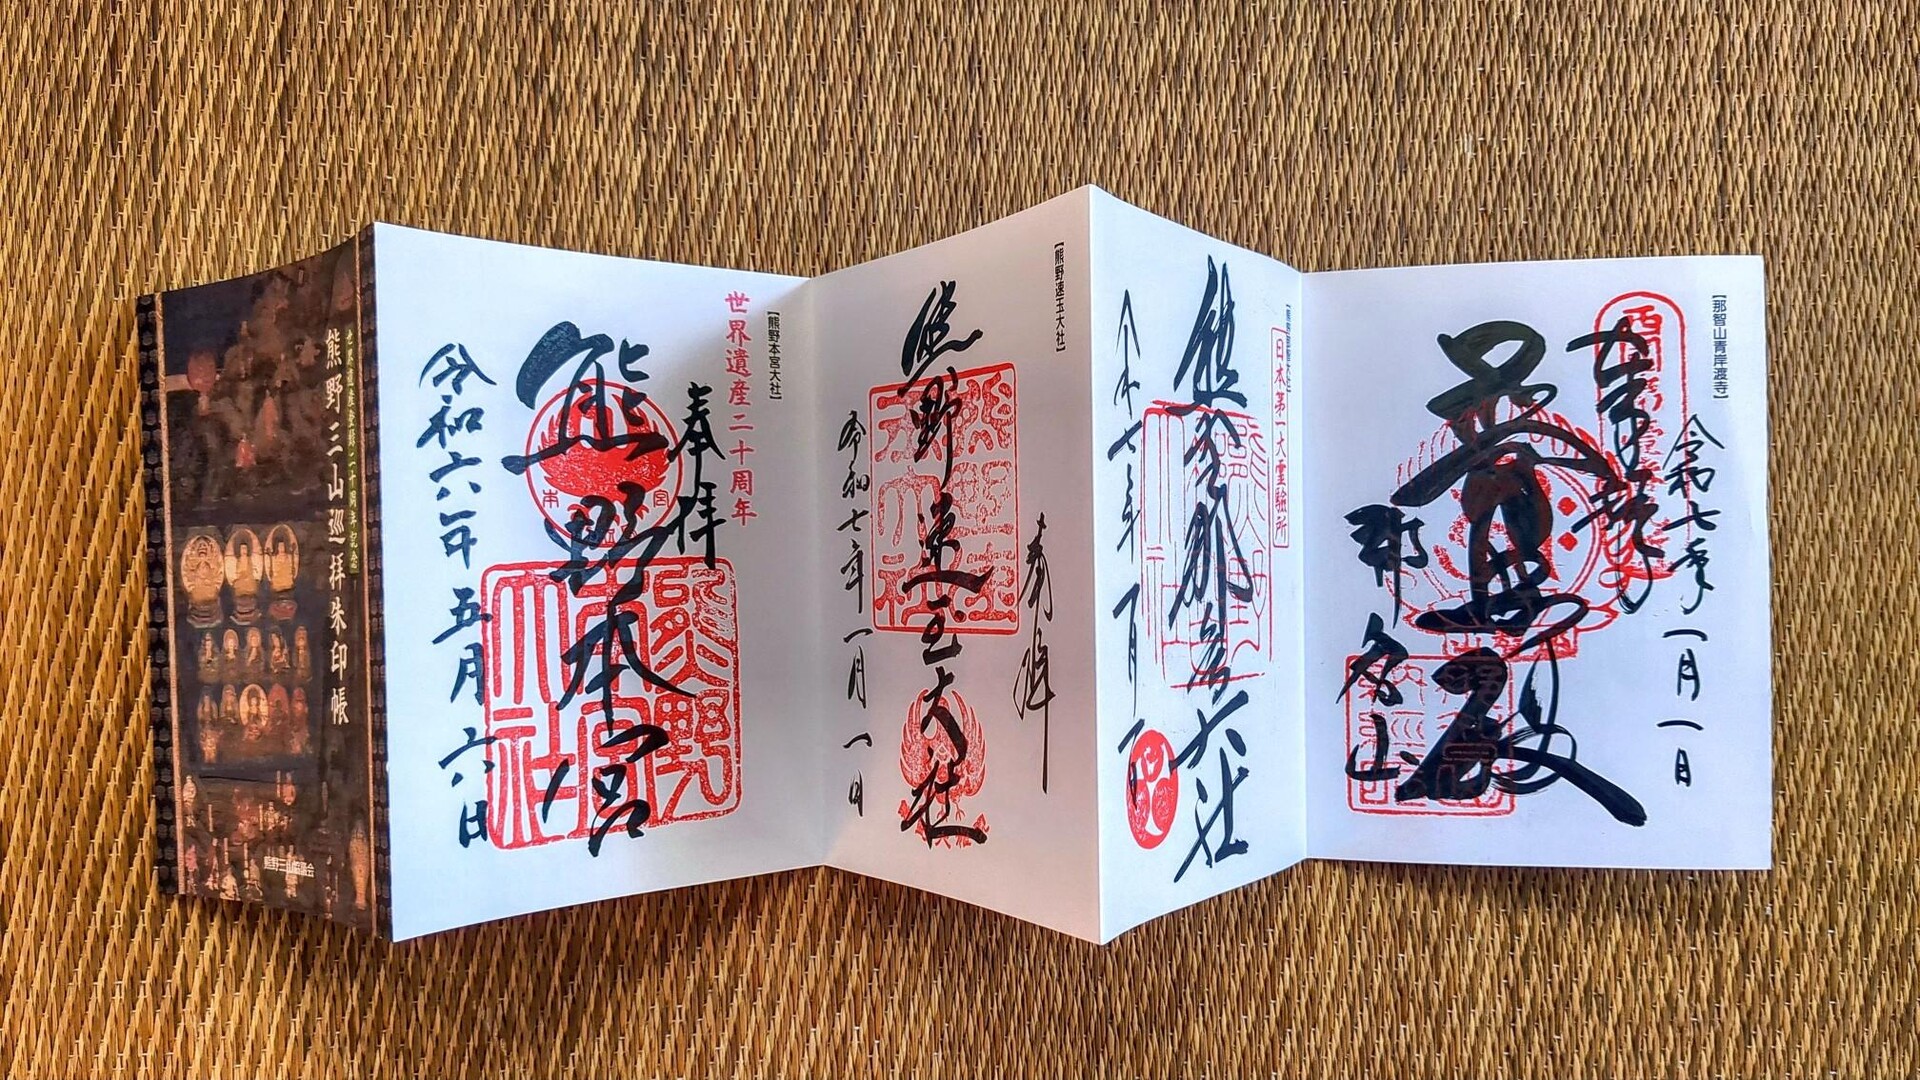 世界遺産登録二十周年記念
熊野三山巡拝朱印帳
熊野三山協議会
【熊野本宮大社】
世界遺産二十周年
奉拝
熊野本宮
令和六年五月六日
熊野本宮大社
【熊野速玉大社】
奉拝
熊野速玉大社
令和七年一月一日
【熊野那智大社】
日本第一大霊験所
熊野那智大社
令和七年一月一日
【那智山青岸渡寺】
令和七年一月一日
奉拝
普照殿
那智山